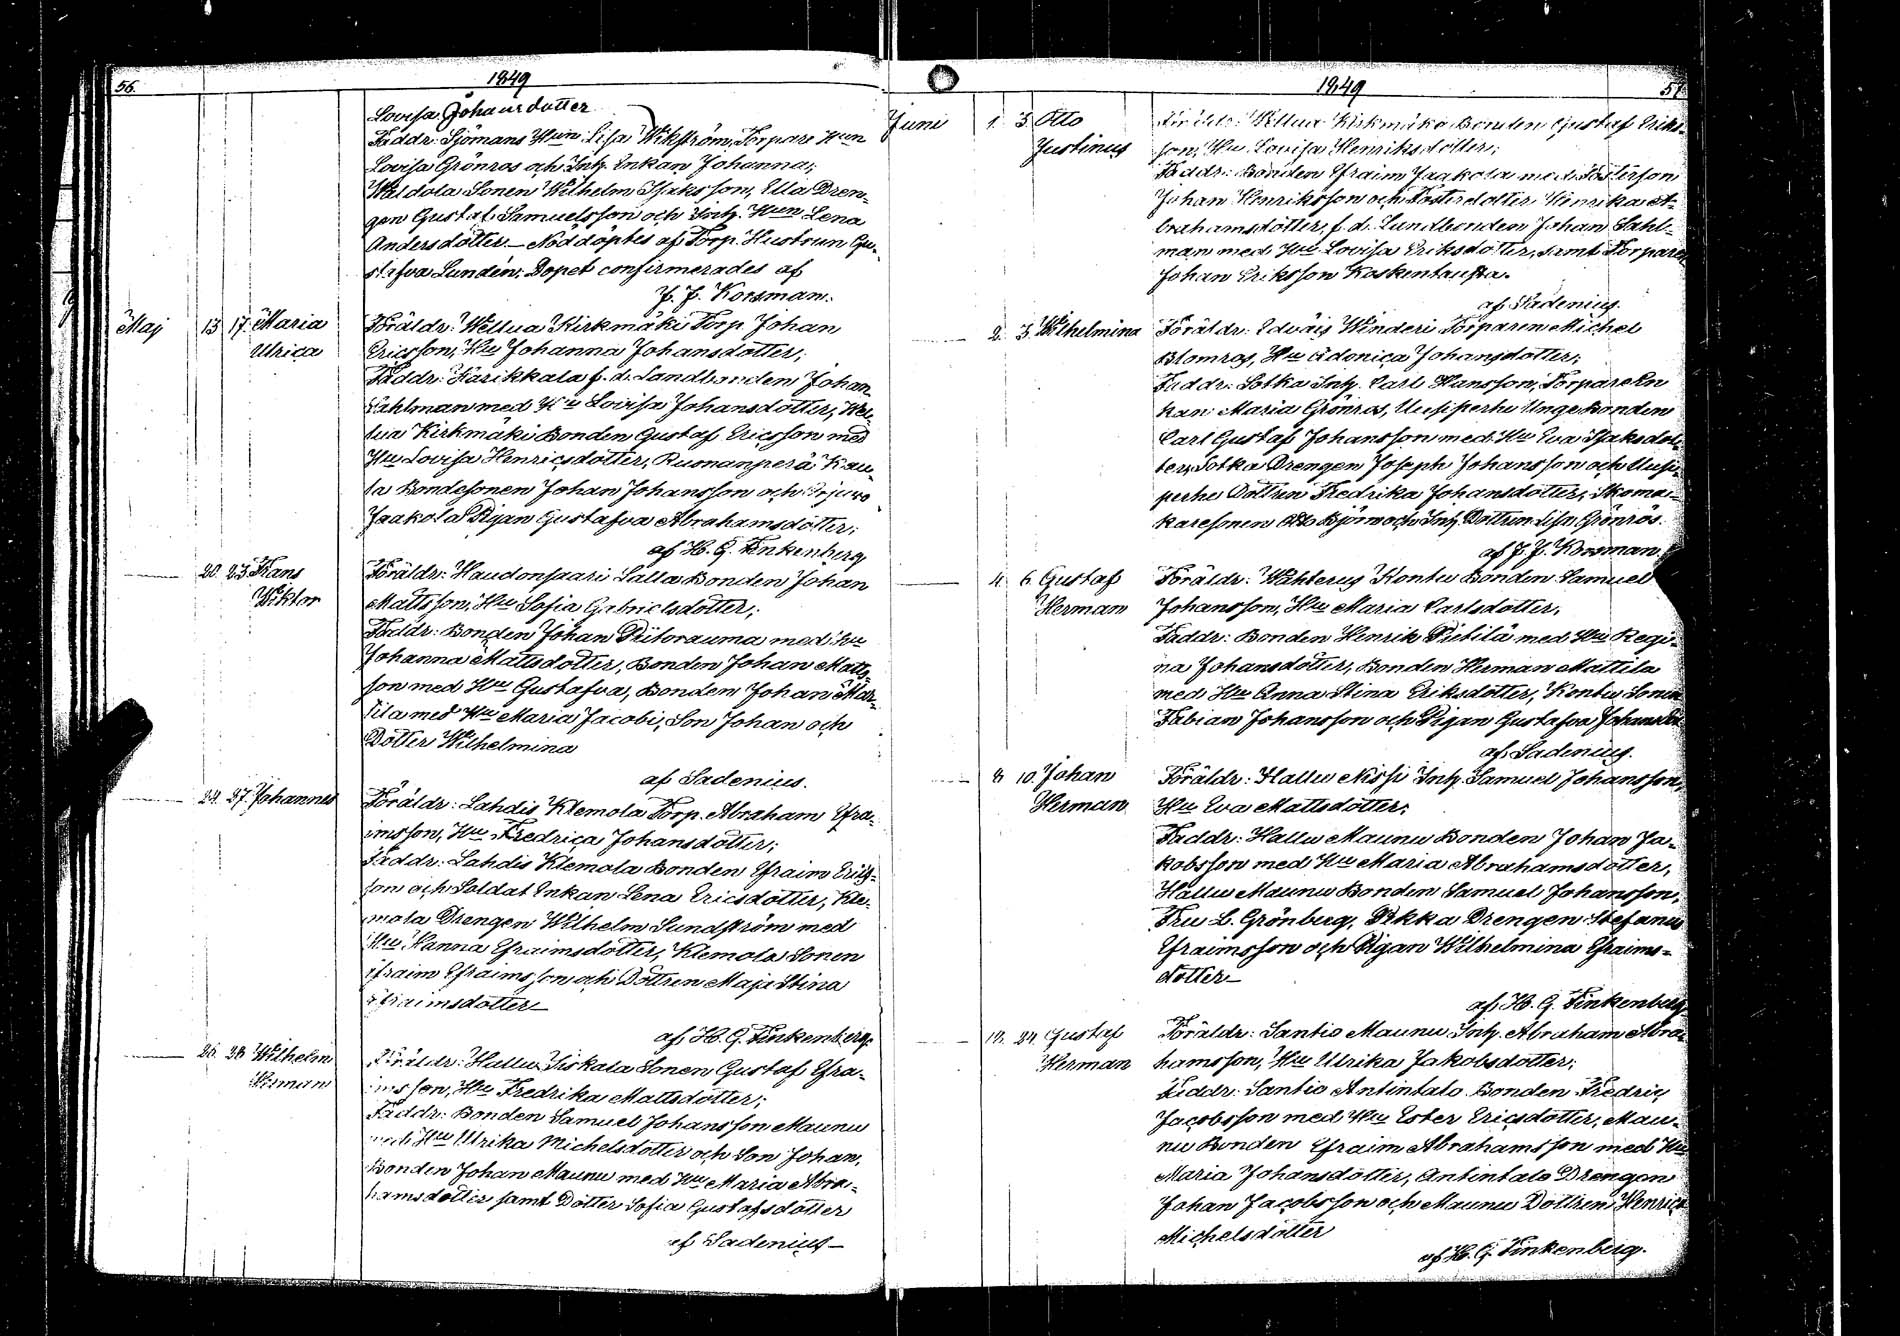 56.
1849
Lovisa Johansdotter
Faddr: Sjömans Hun Lisa Wikström, Torpare Hun
Lovisa Grönros och Inh. Enkan Johanna;
Waldola Sonen Wilhelm Isaksson, Ella Dren-
gen Gustaf Samuelsson och Inh. Hun Lena
Andersdotter. Nöddöptes af Torp. Hustrun Gu-
stafva Lundén. Dopet confirmerades af
J. J. Korsman.
Maj 13 17. Maria Ulrica
Föräldr: Wellua Kirkmäki Torp. Johan
Ericsson, Hu Johanna Johansdotter;
Faddr: Karikkala f. d. Landbonden Johan
Sahlman med Hu Lovisa Johansdotter, Wel-
lua Kirkmäki Bonden Gustaf Ericsson med
Hu Lovisa Henricsdotter, Ruonanperä Kau-
la Bondesonen Johan Johansson och
Jaakola Pigan Gustafva Abrahamsdotter;
af H. G. Finkenberg
20. 23. Frans Wiktor
Föräldr: Haudonsaari Salla Bonden Johan
Mattsson, Hu Sofia Gabrielsdotter;
Faddr: Bonden Johan Riitorauma med Hu
Johanna Mattsdotter, Bonden Johan Matts-
son med Hu Gustafva, Bonden Johan Mar-
tila med Hu Maria Jacobi, Son Johan och
Dotter Wilhelmina
af Sadenius.
24. 27. Johannes
Föräldr: Lahdis Klemola Torp. Abraham Efra-
imsson, Hu Fredrica Johansdotter;
Faddr: Lahdis Klemola Bonden Efraim Erics-
son och Soldat Enkan Lena Ericsdotter, Kle-
mola Drengen Wilhelm Sundström med
Hu Hanna Efraimsdotter, Klemola Sonen
Efraim Efraimsson och Dottren Maja Stina
Efraimsdotter
af H. G. Finkenberg.
26. 28. Wilhelm Herman
Föräldr: Hallu Yiskala Sonen Gustaf Efra-
imsson, Hu Fredrika Mattsdotter;
Faddr: Bonden Samuel Johansson Maunu
med Hu Ulrika Michelsdotter och Son Johan,
Bonden Johan Maunu med Hu Maria Abra-
hamsdotter samt Dotter Sofia Gustafsdotter
af Sadenius
1849
57
Juni 1. 3. Otto Justinus
Föräldr: Wellua Kirkmäki Bonden Gustaf Eriks-
son, Hu Lovisa Henriksdotter;
Faddr: Bonden Efraim Jaakola med Fosterson
Johan Henriksson och Fosterdotter Henrika A-
brahamsdotter, f. d. Lundbonden Johan Sahl-
man med Hu Lovisa Eriksdotter, samt Torparen
Johan Eriksson Koskentausta.
af Sadenius.
2. 3. Wilhelmina
Föräldr: Edväis Winderi Torparen Michel
Blomros, Hu Adonica Johansdotter;
Faddr: Sotka Inh. Carl Hansson, Torpare En
kan Maria Grönros, Uusiperhe Unge Bonden
Carl Gustaf Johansson med Hu Eva Isaksdot-
ter, Sotka Drengen Joseph Johansson och Uusi-
perhe Dottren Fredrika Johansdotter, Skoma-
karesonen Otto Björn och Inh. Dottren Lisa Grönros.
af J. J. Korsman.
4. 6. Gustaf Herman
Föräldr: Wahterus Kontu Bonden Samuel
Johansson, Hu Maria Carlsdotter,
Faddr: Bonden Henrik Pietilä med Hu Regi-
na Johansdotter, Bonden Herman Mattila
med Hu Anna Stina Eriksdotter, Kontu Sonen
Fabian Johansson och Pigan Gustafva Johansdot
af Sadenius.
8. 10. Johan Herman
Föräldr: Hallu Nissi Inh. Samuel Johansson,
Hu Eva Mattsdotter;
Faddr: Hallu Maunu Bonden Johan Ja-
kobsson med Hu Maria Abrahamsdotter,
Hallu Maunu Bonden Samuel Johansson,
Fru L. Grönberg, Pikka Drengen Stefanus
Efraimsson och Pigan Wilhelmina Efraims-
dotter
af H. G. Finkenberg
24. Gustaf Herman
Föräldr: Santio Maunu Inh. Abraham Abra-
hamsson, Hu Ulrika Jakobsdotter;
Faddr: Santio Antintalo Bonden Fredric
Jacobsson med Hu Ester Ericsdotter, Mau-
nu Bonden Efraim Abrahamsson med Hu
Maria Johansdotter, Antintalo Drengen
Johan Jacobsson och Maunu Dottren Henrica
Michelsdotter
af H. G. Finkenberg.